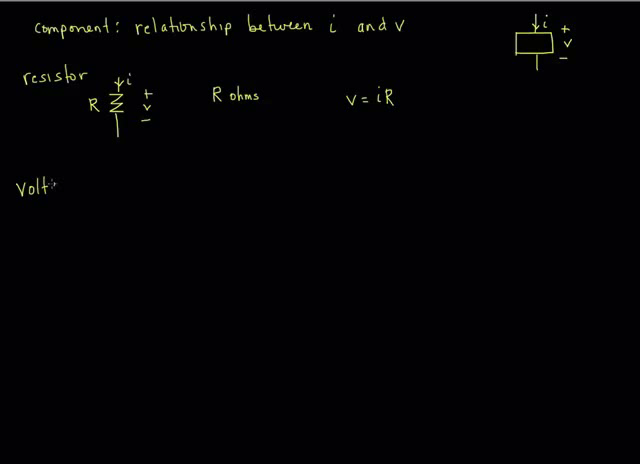 component: relationship between i and v
i
+
v
-
resistor
i
R
+
v
-
R ohms
v = iR
Volt